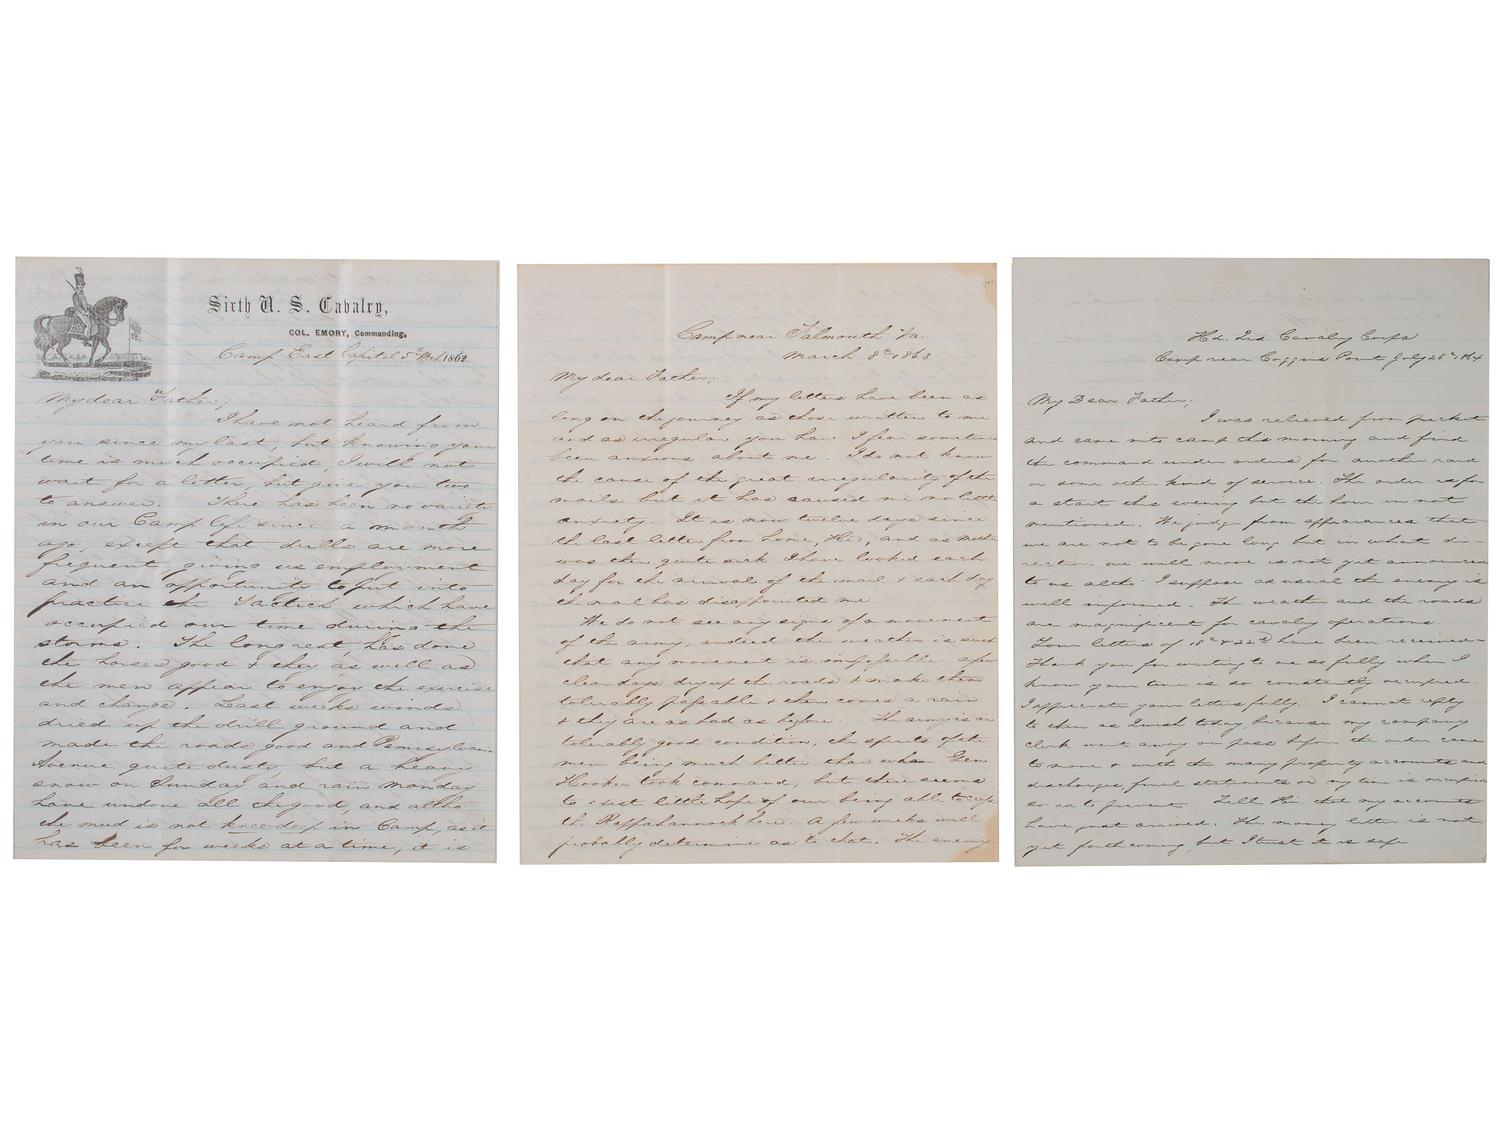 Sixth U. S. Cavalry,
COL. EMORY, Commanding,
Camp East Capitol 5th Mch 1862.
My dear Father;
I have not heard from
you since my last, but knowing your
time is much occupied, I will not
wait for a letter, but give you two
to answer. There has been no variety
in our Camp life since a month
ago, except that drills are more
frequent, giving us employment
and an opportunity to put into
practice the Tactics which have
occupied our time during the
storms. The long rest has done
the horses good & they, as well as
the men appear to enjoy the exercise
and change. Last weeks winds
dried up the drill ground and
made the roads good and Pennsylvania
Avenue quite dusty, but a heavy
snow on Sunday and rain Monday
have undone all the good, and altho
the mud is not knee deep in Camp, as it
has been for weeks at a time, it is
Camp near Falmouth Va.
March 8th 1863
My dear Father;
If my letters have been as
long on the journey as those written to me
and as irregular you have I fear sometimes
been anxious about me. I do not know
the cause of the great irregularity of the
mails but it has caused me no little
anxiety. It is now twelve days since
the last letter from home, and as Mother
was then quite sick I have looked each
day for the arrival of the mail & each day
the mail has disappointed me.
We do not see any signs of a movement
of the army, indeed the weather is such
that any movement is impossible. A few
clear days dry up the roads & make them
tolerably passable & then comes a rain
& they are as bad as before. The army is in
tolerably good condition, the spirits of the
men being much better than when Gen
Hooker took command, but there seems
to exist little hope of our being able to cross
the Rappahannock here. A few weeks will
probably determine as to that. The enemy
Hd. Qrs. Cavalry Corps
Camp near Coggins Point July 26th 1864
My Dear Father;
I was relieved from picket
and came into camp this morning and find
the command under orders for another raid
or some other kind of service. The order is for
a start this evening but the hour is not
mentioned. We judge from appearances that
we are not to be gone long but in what di-
rection we will move is not yet announced
to us altho' I suppose as usual the enemy is
well informed. The weather and the roads
are magnificent for cavalry operations.
Your letters of 18th & 22d have been received-
Thank you for writing to me so fully when I
know your time is so constantly occupied.
I appreciate your letters fully. I cannot reply
to them as I wish today, because my company
clerk went away on pass before the order came
to move & with the many property accounts and
discharges, final statements &c my time is occupied
so as to prevent. Tell that my accounts
have just arrived. The money letter is not
yet forthcoming, but I trust it is safe